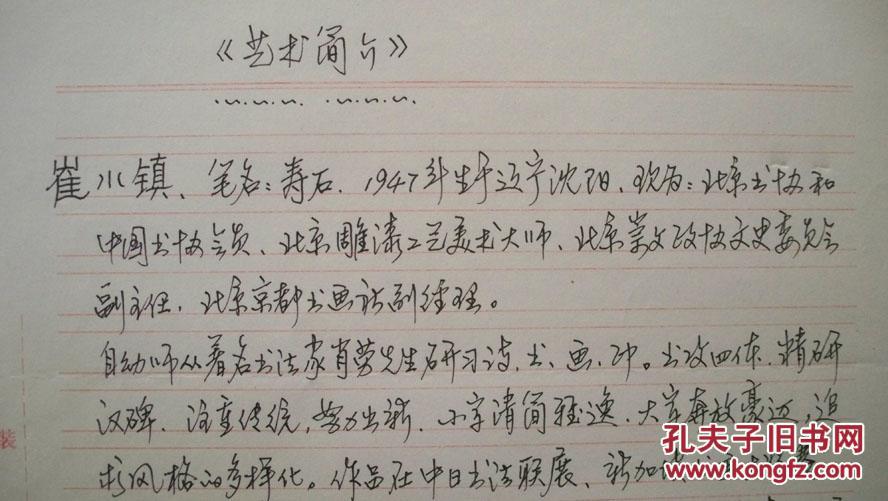 《艺术简介》
崔水镇、笔名：寿石．1947年生于辽宁沈阳、现为：北京书协和
中国书协会员、北京雕漆工艺美术大师、北京崇文政协文史委员会
副主任．北京京都书画社副经理。
自幼师从著名书法家肖劳先生研习诗、书、画、印。书攻四体．精研
汉碑．注重传统，努力出新．小字清简雅逸．大字奔放豪迈，追
求风格的多样化。作品在中日书法联展、新加坡
孔夫子旧书网
www.kongfz.com
装